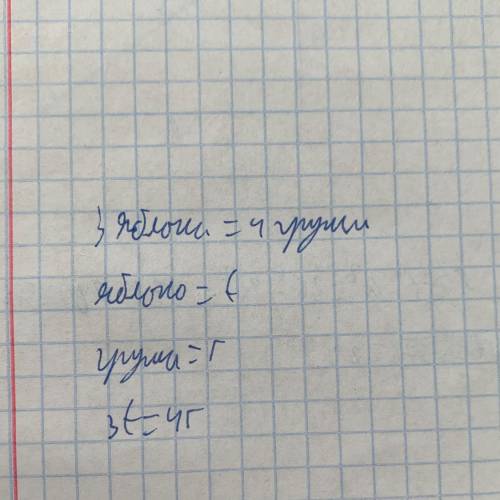 3 яблока = 4 груши
яблоко = t
груша = г
3t = 4г